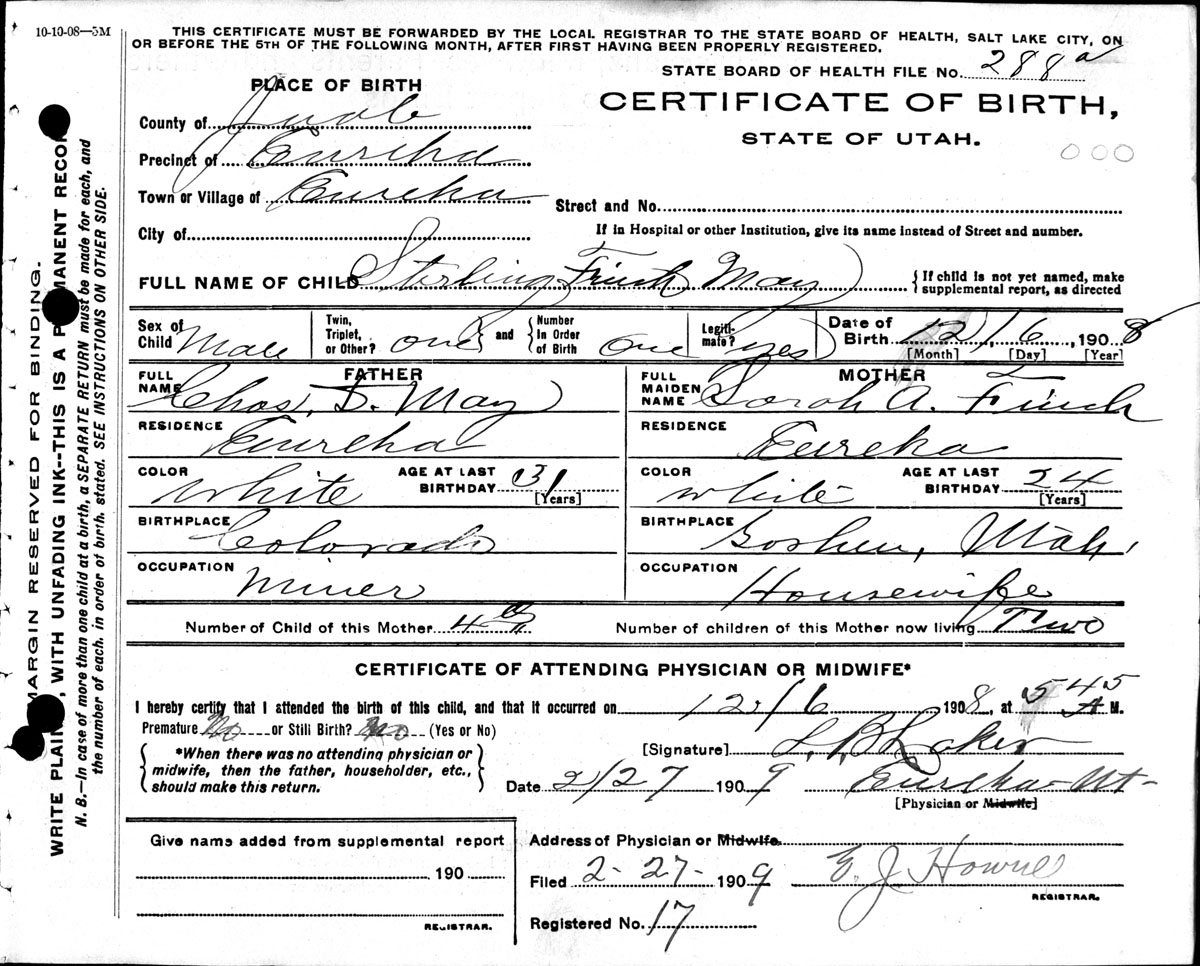 10-10-08—5M
THIS CERTIFICATE MUST BE FORWARDED BY THE LOCAL REGISTRAR TO THE STATE BOARD OF HEALTH, SALT LAKE CITY, ON
OR BEFORE THE 5TH OF THE FOLLOWING MONTH, AFTER FIRST HAVING BEEN PROPERLY REGISTERED.
STATE BOARD OF HEALTH FILE No. 288 a
PLACE OF BIRTH
CERTIFICATE OF BIRTH,
STATE OF UTAH.
000
County of Juab
Precinct of Eureka
Town or Village of Eureka
Street and No.
City of
If in Hospital or other Institution, give its name instead of Street and number.
FULL NAME OF CHILD Sterling Finch May
{If child is not yet named, make supplemental report, as directed
Sex of Child Male
Twin, Triplet, or Other? one and {Number In Order of Birth one
Legiti-mate? yes
Date of Birth 12/16, 1908
[Month] [Day] [Year]
FATHER
FULL NAME Chas. D. May
RESIDENCE Eureka
COLOR White AGE AT LAST BIRTHDAY 31 [Years]
BIRTHPLACE Colorado
OCCUPATION Miner
MOTHER
FULL MAIDEN NAME Sarah A. Finch
RESIDENCE Eureka
COLOR White AGE AT LAST BIRTHDAY 24 [Years]
BIRTHPLACE Goshen, Utah,
OCCUPATION Housewife
Number of Child of this Mother 4th
Number of children of this Mother now living Two
CERTIFICATE OF ATTENDING PHYSICIAN OR MIDWIFE*
I hereby certify that I attended the birth of this child, and that it occurred on 12/16 1908, at 545 A M.
Premature No or Still Birth? No (Yes or No)
{*When there was no attending physician or midwife, then the father, householder, etc., should make this return.}
[Signature]
Date 2/27 1909 Eureka Ut
[Physician or Midwife]
Give name added from supplemental report
190
REGISTRAR.
Address of Physician or Midwife
Filed 2-27- 1909 E. J. Howell
REGISTRAR.
Registered No. 17
MARGIN RESERVED FOR BINDING.
WRITE PLAINLY, WITH UNFADING INK--THIS IS A PERMANENT RECORD
N. B.—In case of more than one child at a birth, a SEPARATE RETURN must be made for each, and
the number of each, in order of birth, stated. SEE INSTRUCTIONS ON OTHER SIDE.